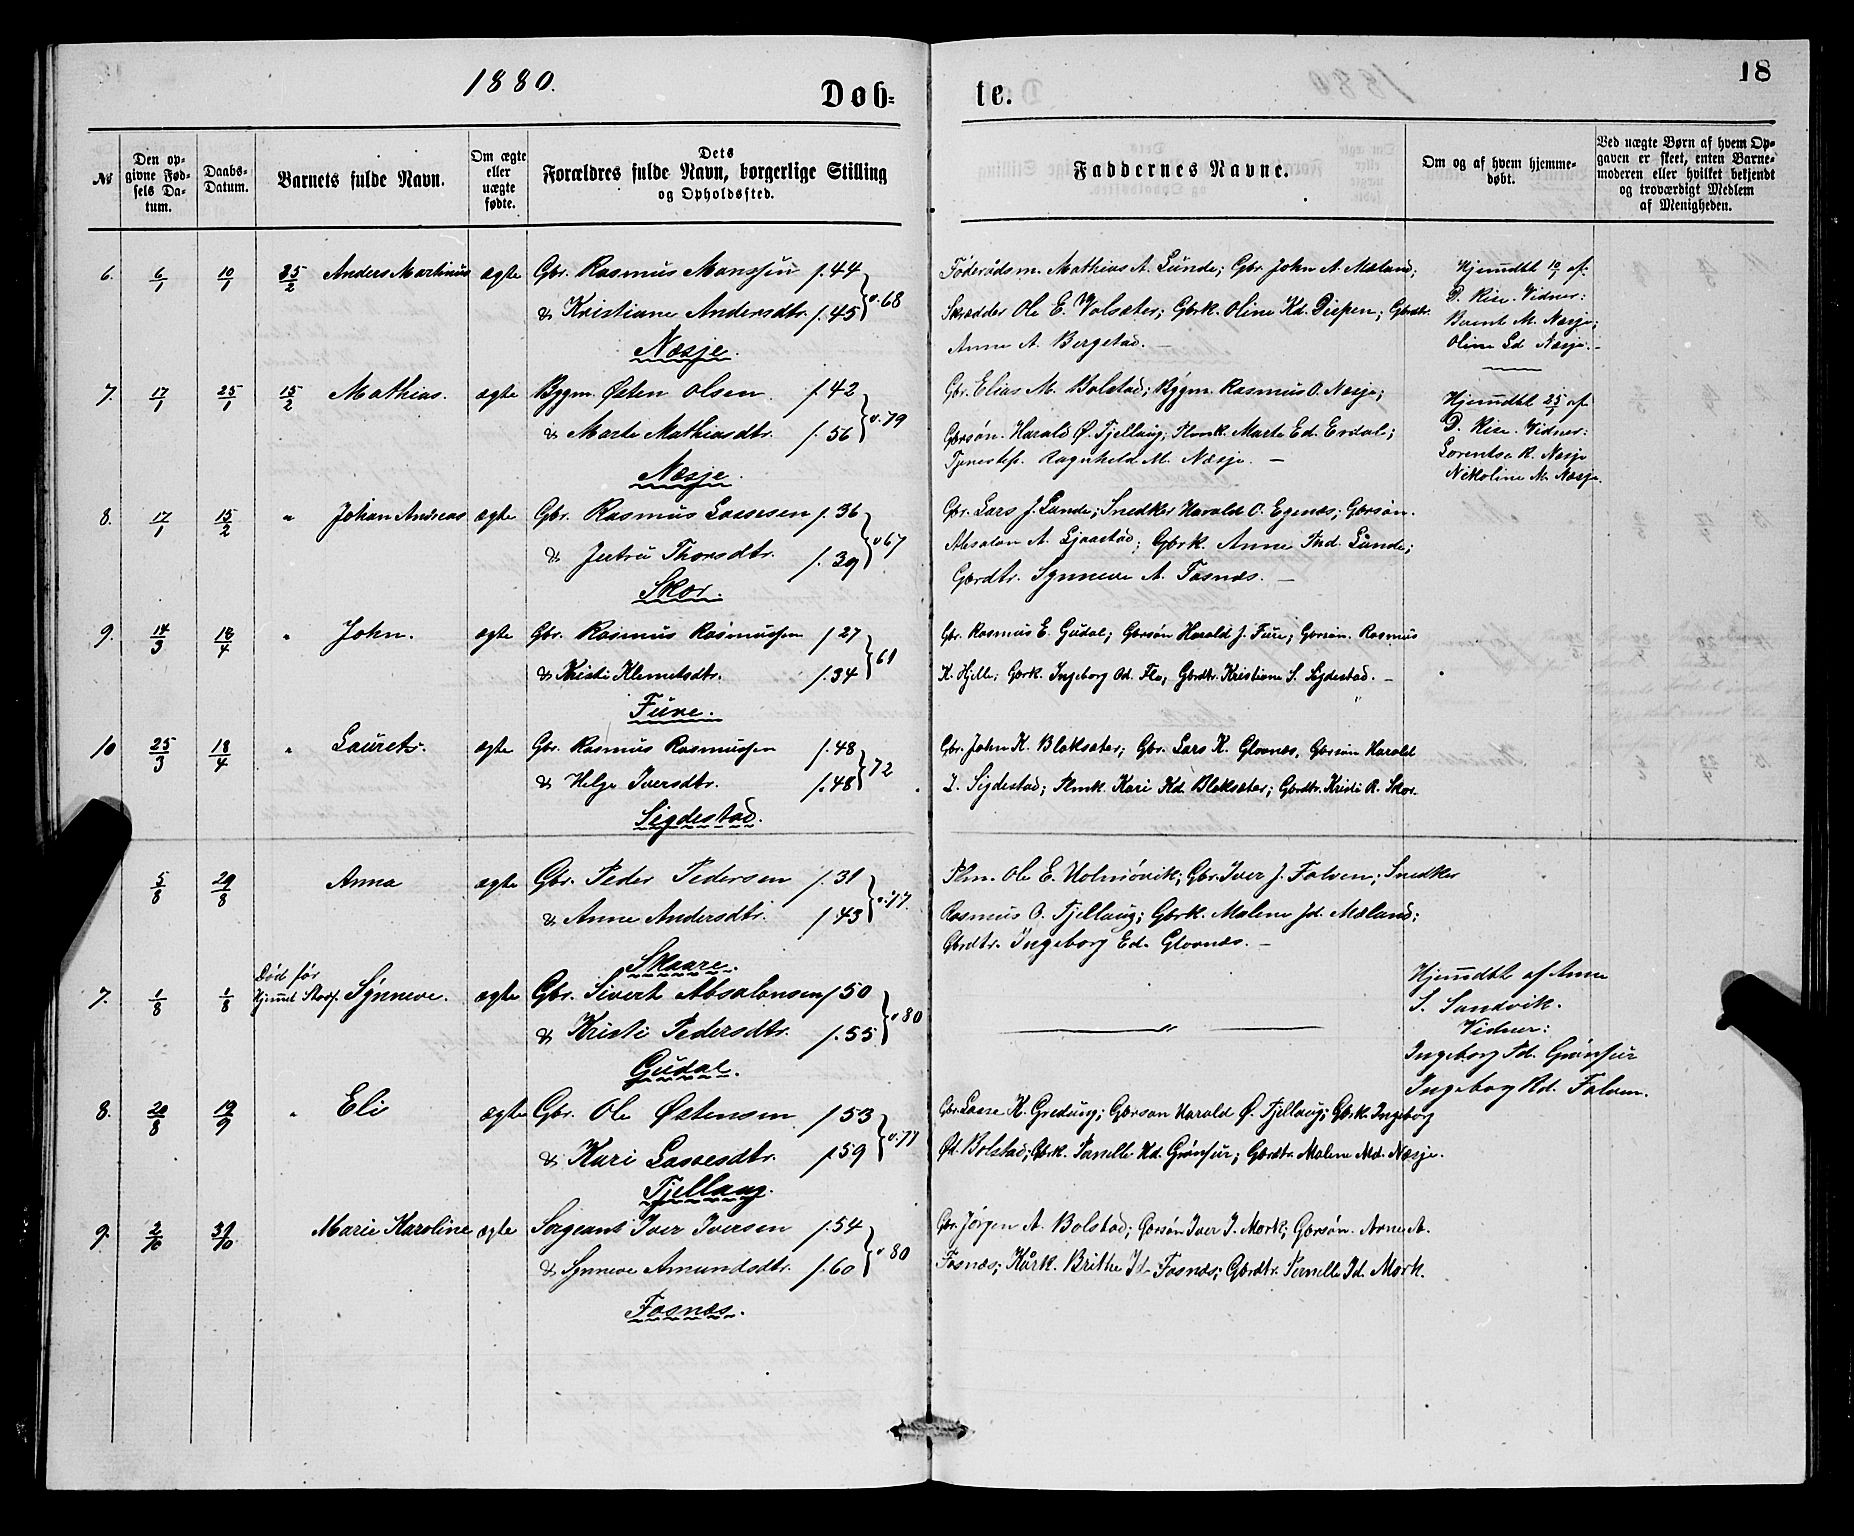 1880.
Døb=
te.
18
№
Den opgivne Fødsels Datum.
Daabs-Datum.
Barnets fulde Navn.
Om ægte eller uægte fødte.
Dets Forældres fulde Navn, borgerlige Stilling og Opholdssted.
Faddernes Navne.
Om og af hvem hjemmedøbt.
Ved uægte Børn af hvem Opgaven er skeet, enten Barnemoderen eller hvilket bekjendt og troværdigt Medlem af Menigheden.
6. 6/1 10/1 Anders Martinus ægte Gbr. Rasmus Monssen f. 44
& Kristiane Andersdtr. f. 45 v. 68
Næsje.
Føderådsm. Mathias A. Lunde; Gbr John A. Mæland;
Skrædder Ole E. Volsæter; Gbrk. Oline Kd. Diepen; Gbrdtr.
Anne A. Bergstad. —
Hjemdbt 10/1 af
D. Rise. Vidner:
Bernt M. Næsje;
Oline Ed Næsje. —
7. 17/1 25/1 15/2 Mathias. ægte Bygm. Østen Olsen f. 42
& Marte Mathiasdtr. f. 56 v. 79
Næsje.
Gbr. Elias M. Bolstad; Bygm. Rasmus O. Næsje;
Gbrsøn. Harald Ø. Tjellaug; Plmk. Marte Ed. Endal;
Tjenestep. Ragnhild M. Næsje. —
Hjemdbt 25/1 af
D. Rise. Vidner:
Lorentse R. Næsje
Nikoline M. Næsje.
8. 17/1 15/2 " Johan Andreas ægte Gbr. Rasmus Lassesen f. 36
& Jertru Thorsdtr. f. 39 v. 67
Skor.
Gbr. Lars J. Lunde; Snedker Harald O. Egenæs; Gbrsøn.
Absalon A. Ljaastad; Gbrk. Anne Pd. Lunde;
Gbrdtr. Synneve A. Fosnæs. —
9. 14/3 18/4 " John. ægte Gbr. Rasmus Rasmussen f. 27
& Kristi Klemetsdtr. f. 34 61
Fure.
Gbr. Rasmus E. Gudal; Gbrsøn Harald J. Fure; Gbrsøn. Rasmus
K. Hjelle; Gbrk. Ingeborg Od. Flo; Gbrdtr. Kristiane S. Sigdestad. —
10 25/3 18/4 " Laurets. ægte Gbr. Rasmus Rasmussen f. 48
& Helge Iversdtr. f. 48 72
Sigdestad.
Gbr. John K. Bleksæter; Gbr. Lars K. Glosnæs, Gbrsøn Harald
I. Sigdestad; Plmk. Kari Kd. Bleksæter; Gbrdtr. Kristi R. Skor.
5/8 29/8 Anna ægte Gbr. Peder Pedersen f. 31
& Anne Andersdtr. f. 43 v. 77
Skaare.
Plm. Ole E. Holmøvik; Gbr. Iver J. Falven; Snedker
Rasmus O. Tjellaug; Gbrk. Malene Jd. Mæland;
Gbrdtr. Ingeborg Ed. Glosnæs. —
7. 1/8 1/8 Død før Synneve. ægte Gbr. Sivert Absalonsen f 50
& Kristi Pedersdtr. f. 55 v 80
Gudal.
Hjemdbt af Anne
S. Sandvik.
Vidner:
Ingeborg Pd. Grønfur
Ingeborg Rd. Falven.
8. 20/8 19/9 " Eli ægte Gbr. Ole Østensen f. 53
& Kari Lassesdtr. f 59 v. 77
Tjellaug.
Gbr Lasse K. Greding; Gbrsøn Harald Ø. Tjellaug; Gbrk. Ingeborg
Ød. Bolstad; Gbrk. Pernelle Kd. Grønfur; Gbrdtr. Malene Md. Næsje.
9. 2/10 31/10 Marie Karoline ægte Sergeant Iver Iversen f. 54
& Synneve Amundsdtr. f. 60 v 80
Fosnæs.
Gbr. Jørgen A. Bolstad; Gbrsøn Iver I. Mork; Gbrsøn. Arne A.
Fosnæs; Kårk. Brithe Id. Fosnæs; Gbrdtr. Pernelle Id. Mork.